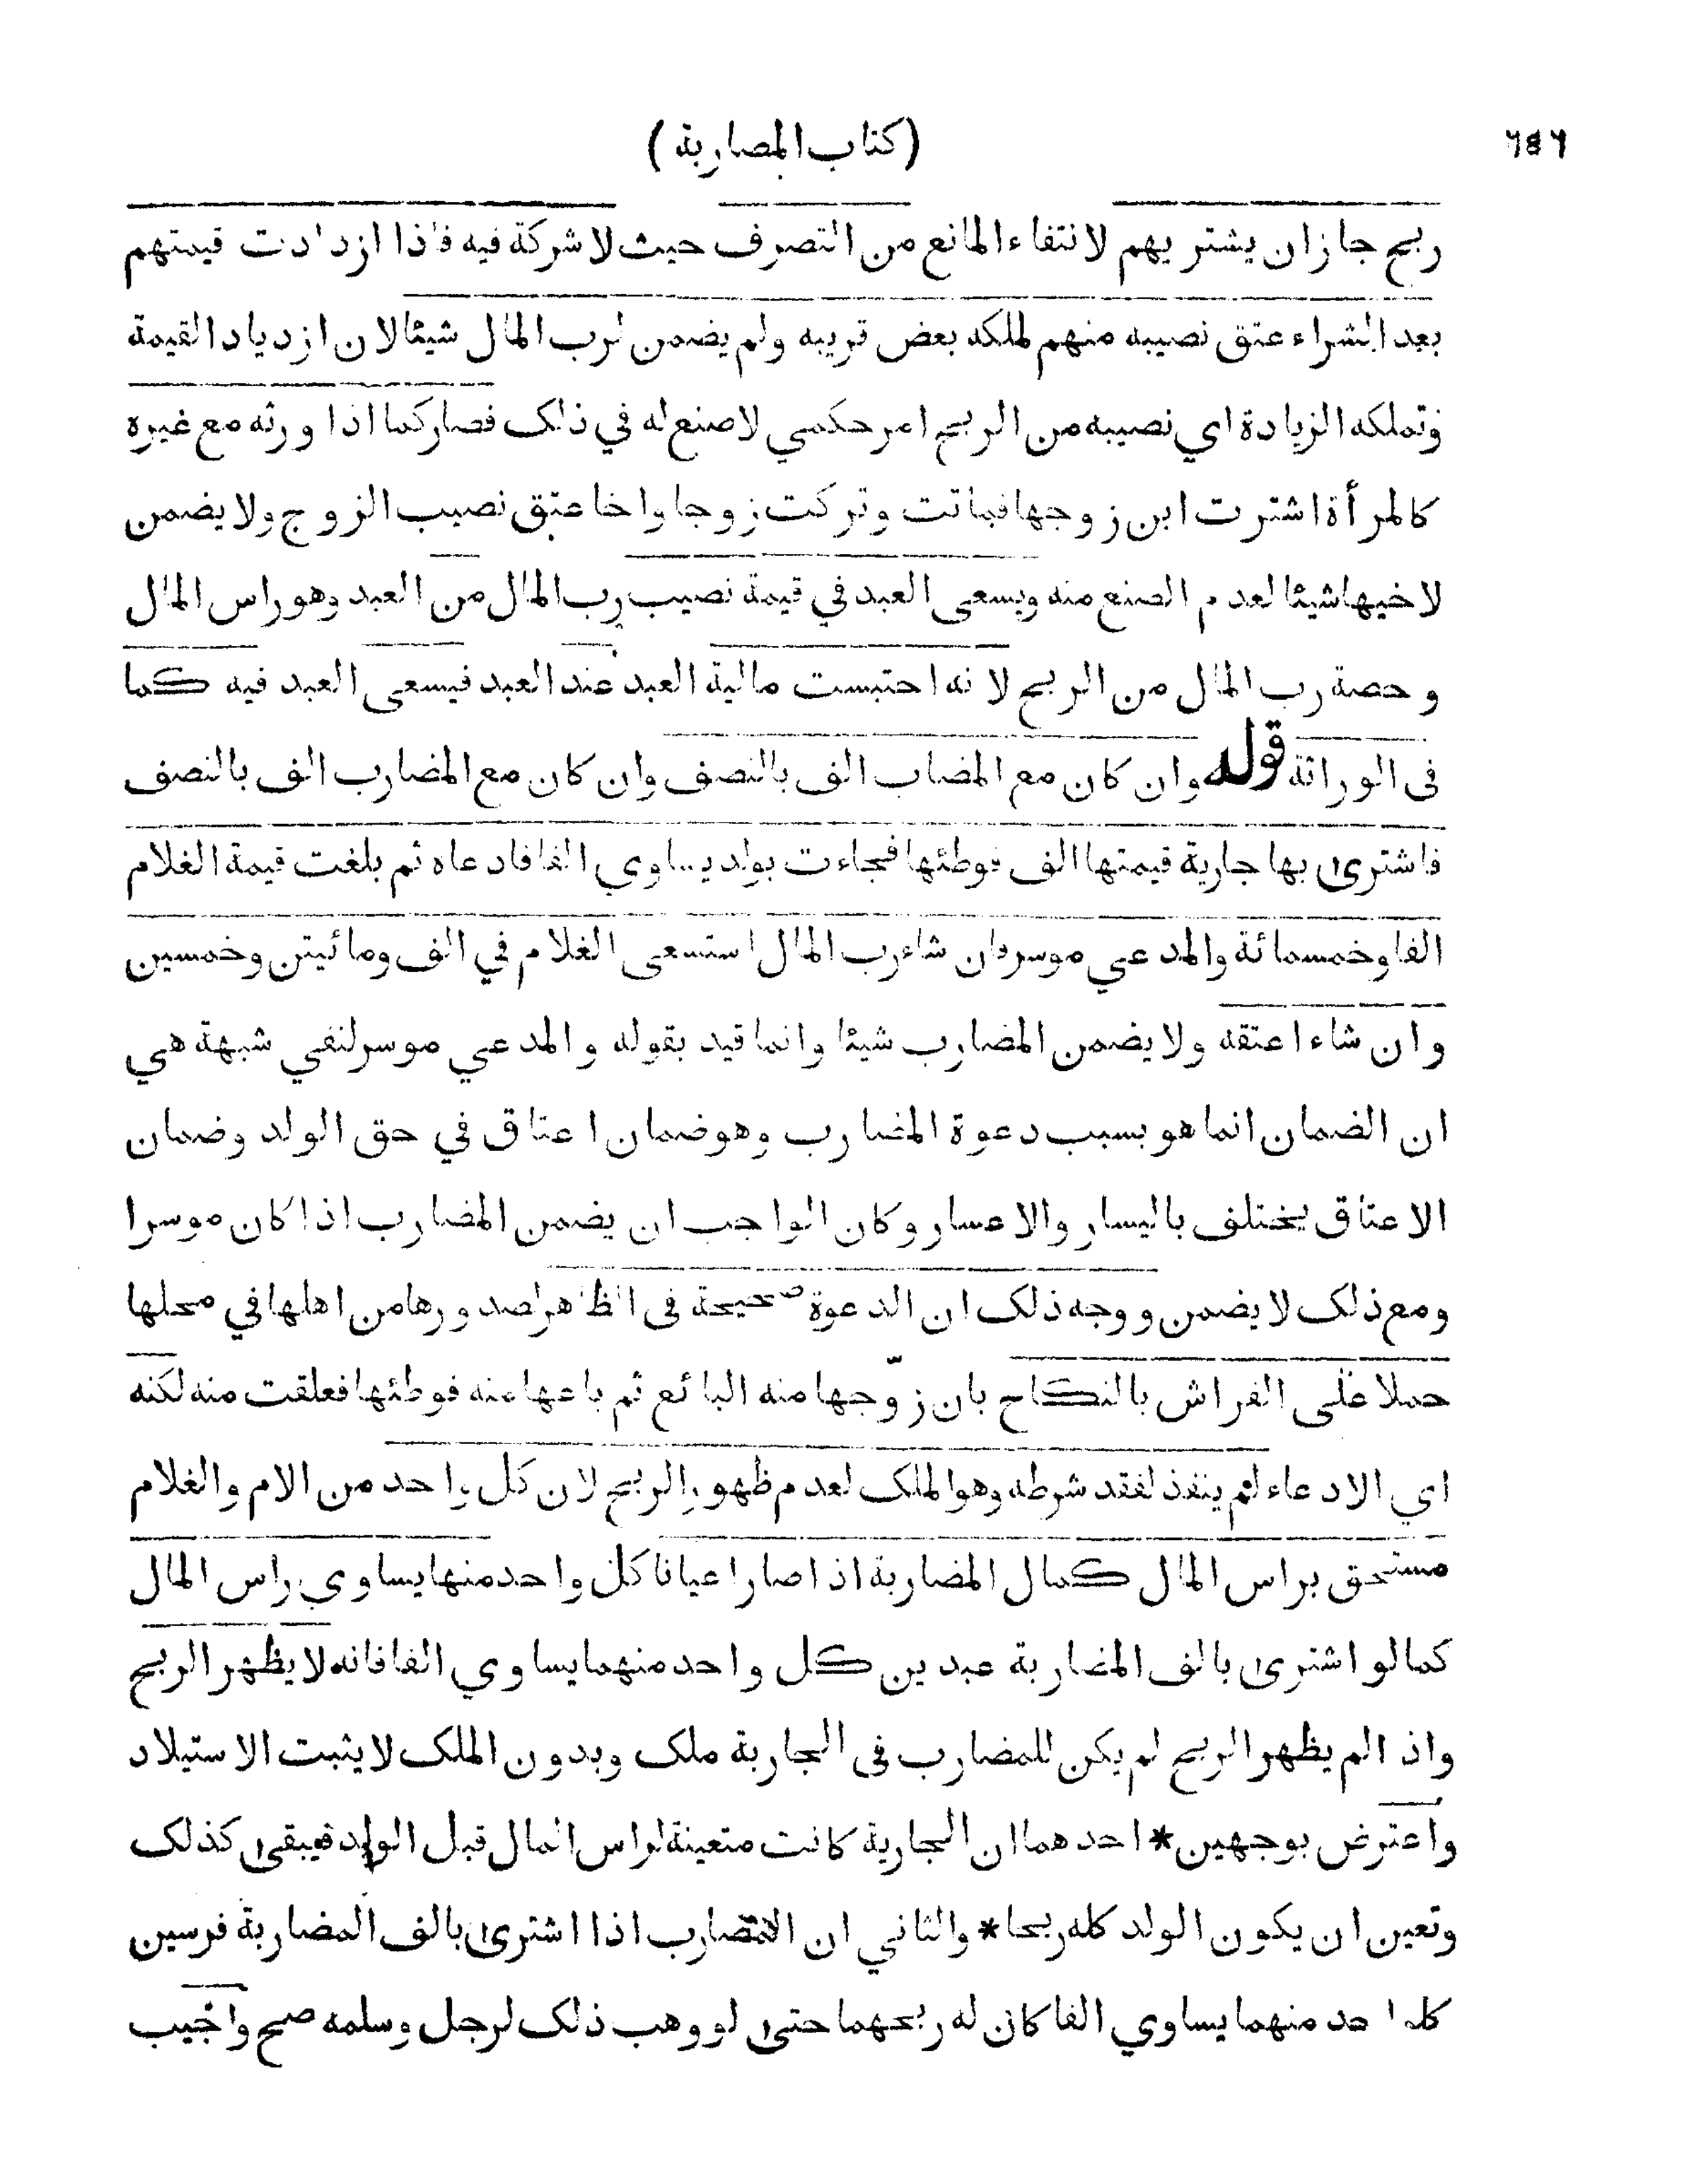 (كتاب المضاربة)
ربح جاز ان يشتريهم لانتفاء المانع من التصرف حيث لا شركة فيه فاذا ازدادت قيمتهم
بعد الشراء عتق نصيبه منهم لملكه بعض قريبه ولم يضمن لرب المال شيئا لان ازدياد القيمة
وتملكه الزيادة اي نصيبه من الربح امر حكمي لا صنع له في ذلك فصار كما اذا ورثه مع غيره
كالمرأة اشترت ابن زوجها فماتت وتركت زوجا واخا عتق نصيب الزوج ولا يضمن
لاخيها شيئا لعدم الصنع منه ويسعى العبد في قيمة نصيب رب المال من العبد وهو راس المال
وحصة رب المال من الربح لانه احتبست مالية العبد عند العبد فيسعى العبد فيه كما
فى الوراثة قوله وان كان مع المضاب الف بالنصف وان كان مع المضارب الف بالنصف
فاشترى بها جارية قيمتها الف فوطئها فجاءت بولد يساوي الفا فادعاه ثم بلغت قيمة الغلام
الفا وخمسمائة والمدعي موسر فان شاء رب المال استسعى الغلام في الف ومائيتن وخمسين
وان شاء اعتقه ولا يضمن المضارب شيئا وانما قيد بقوله والمدعي موسر لنفي شبهة هي
ان الضمان انما هو بسبب دعوة المضارب وهو ضمان اعتاق في حق الولد وضمان
الاعتاق يختلف باليسار والاعسار وكان الواجب ان يضمن المضارب اذا كان موسرا
ومع ذلك لا يضمن ووجه ذلك ان الدعوة صحيحة فى الظاهر لصدورها من اهلها في محلها
حملا على الفراش بالنكاح بان زوّجها منه البائع ثم باعها منه فوطئها فعلقت منه لكنه
اي الادعاء لم ينفذ لفقد شرطه وهو الملك لعدم ظهور الربح لان كل واحد من الام والغلام
مستحق براس المال كمال المضاربة اذا صار اعيانا كل واحد منها يساوي راس المال
كما لو اشترى بالف المضاربة عبدين كل واحد منهما يساوي الفا فانه لا يظهر الربح
واذا لم يظهر الربح لم يكن للمضارب فى الجارية ملك وبدون الملك لا يثبت الاستيلاد
واعترض بوجهين * احدهما ان الجارية كانت متعينة لراس المال قبل الولد فيبقى كذلك
وتعين ان يكون الولد كله ربحا * والثاني ان المضارب اذا اشترى بالف المضاربة فرسين
كل احد منهما يساوي الفا كان له ربعهما حتى لو وهب ذلك لرجل وسلمه صح واجيب